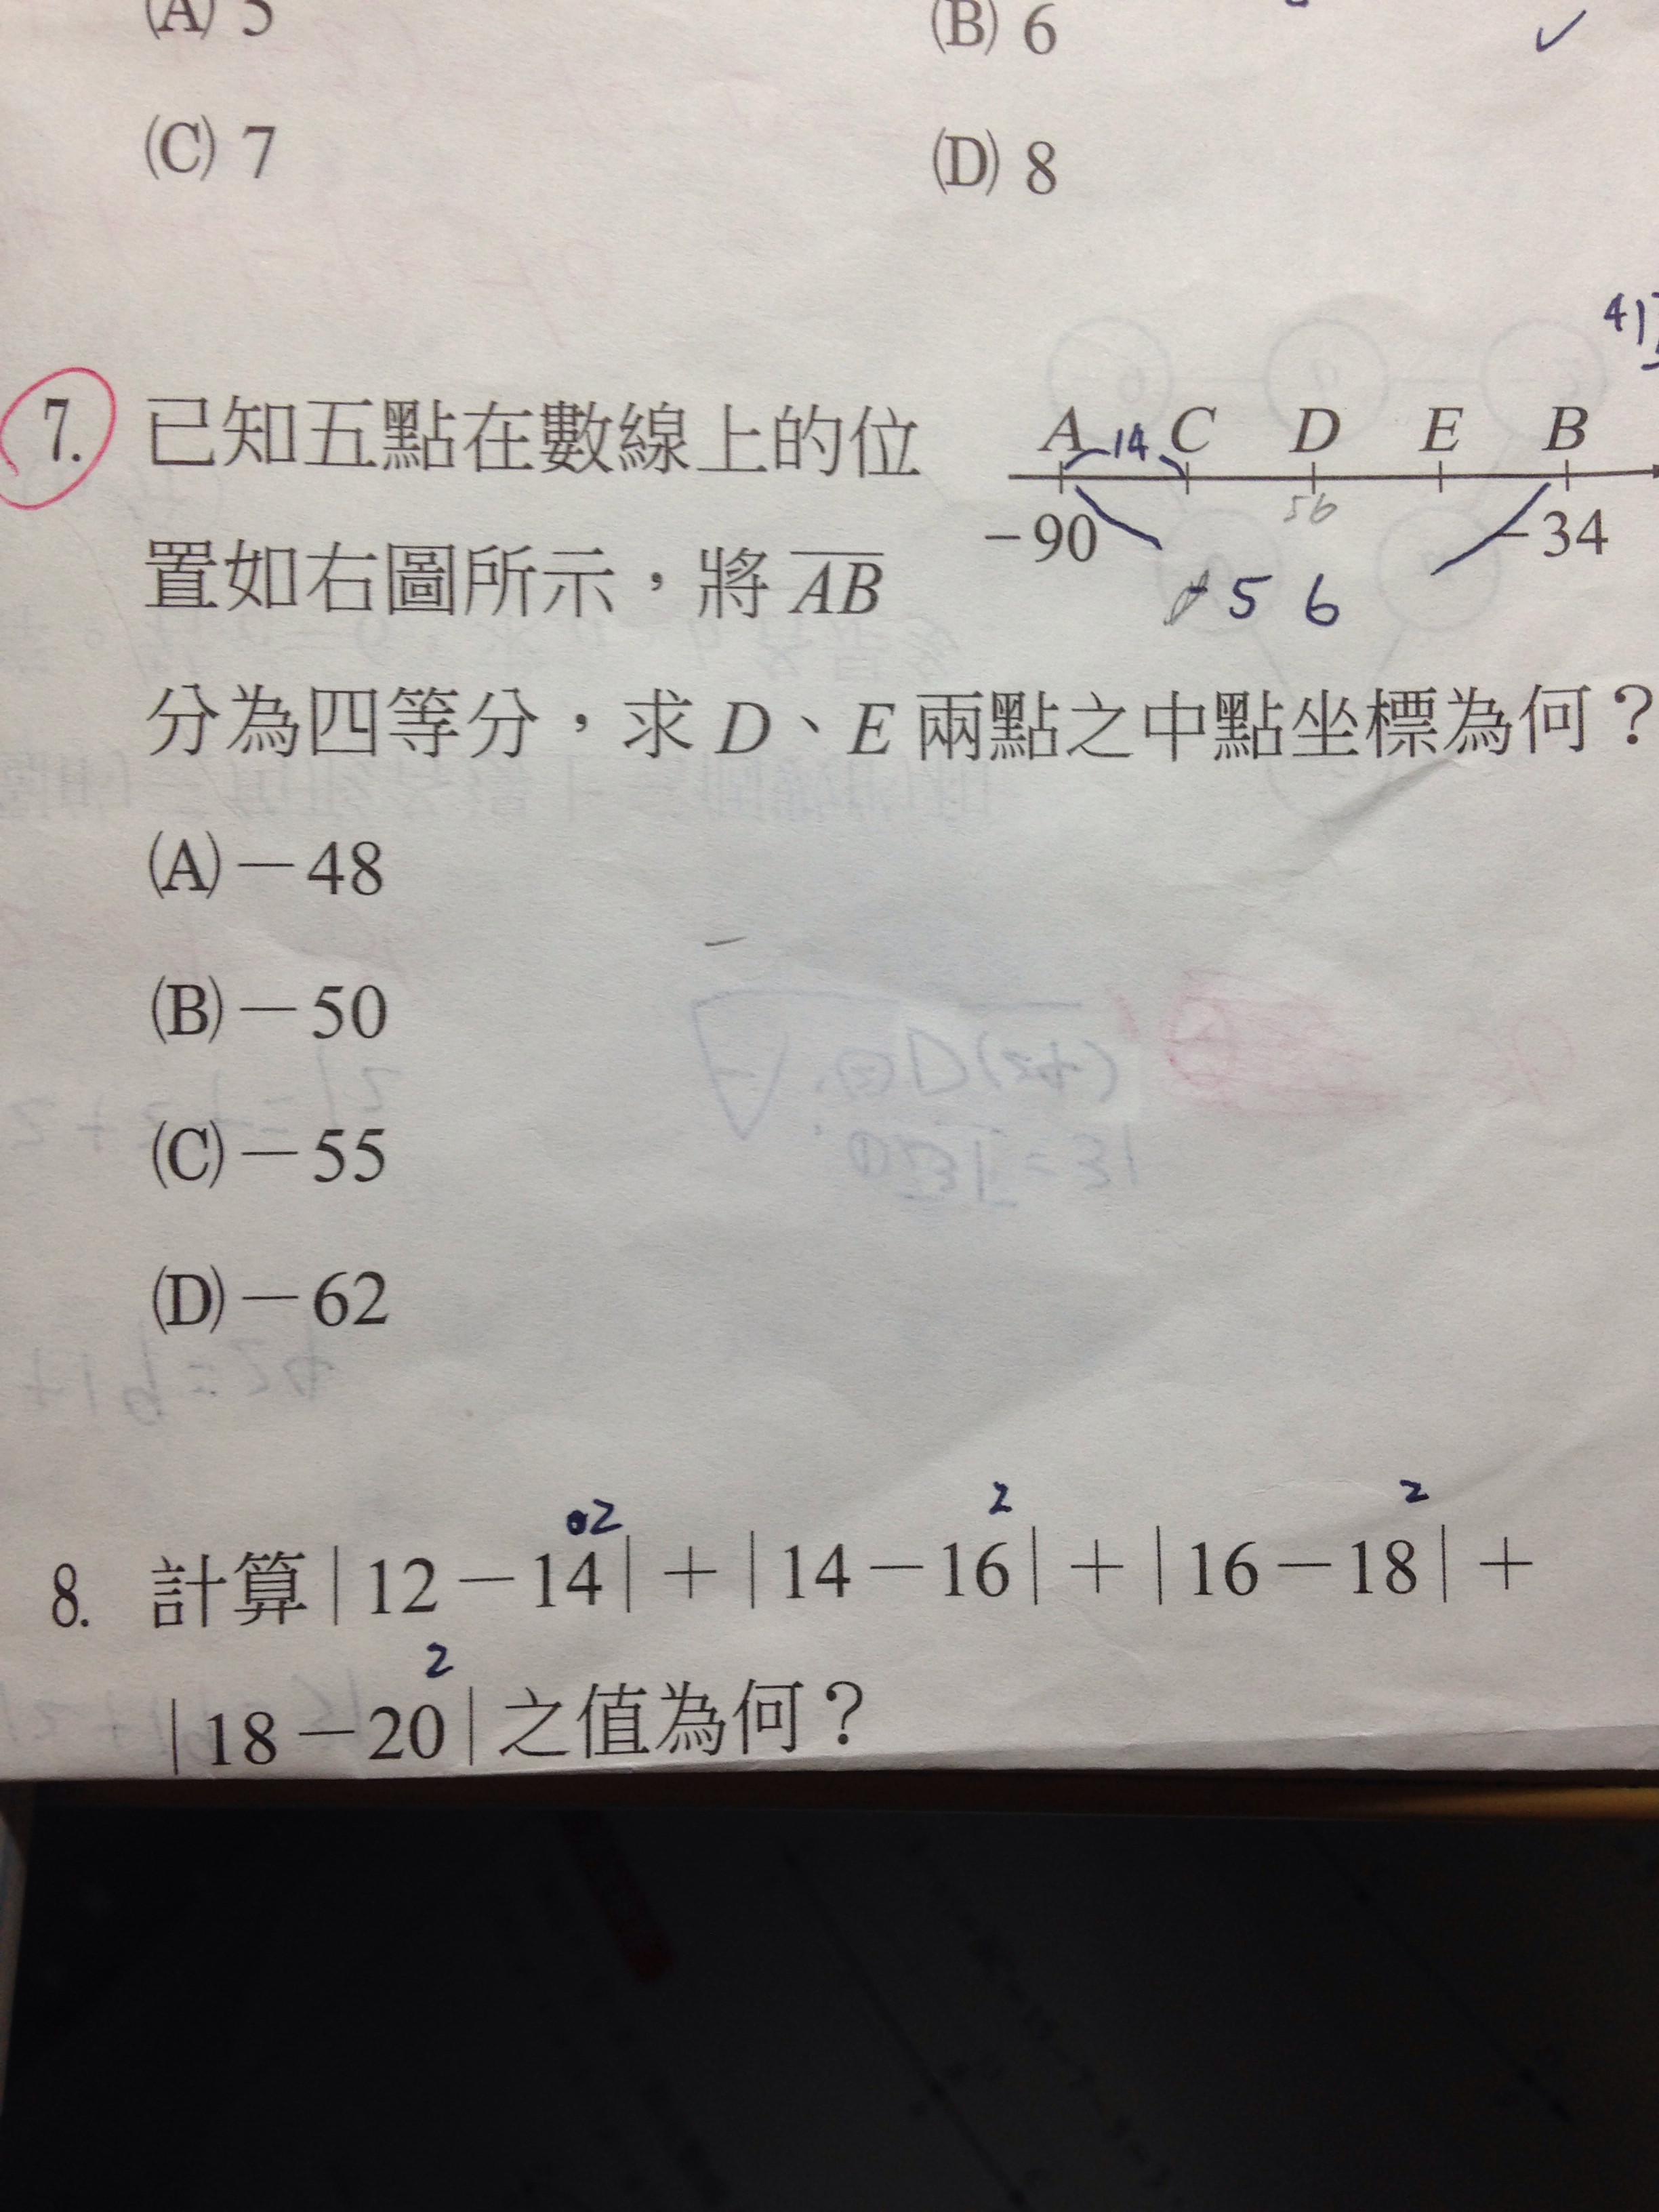 (A) 5 (B) 6
(C) 7 (D) 8
7. 已知五點在數線上的位
A 14 C D E B
56
-90 -34
置如右圖所示，將 AB
56
分為四等分，求 D、E 兩點之中點坐標為何？
(A)－48
(B)－50
(C)－55
(D)－62
2 2 2
8. 計算|12－14|＋|14－16|＋|16－18|＋
2
|18－20|之值為何？